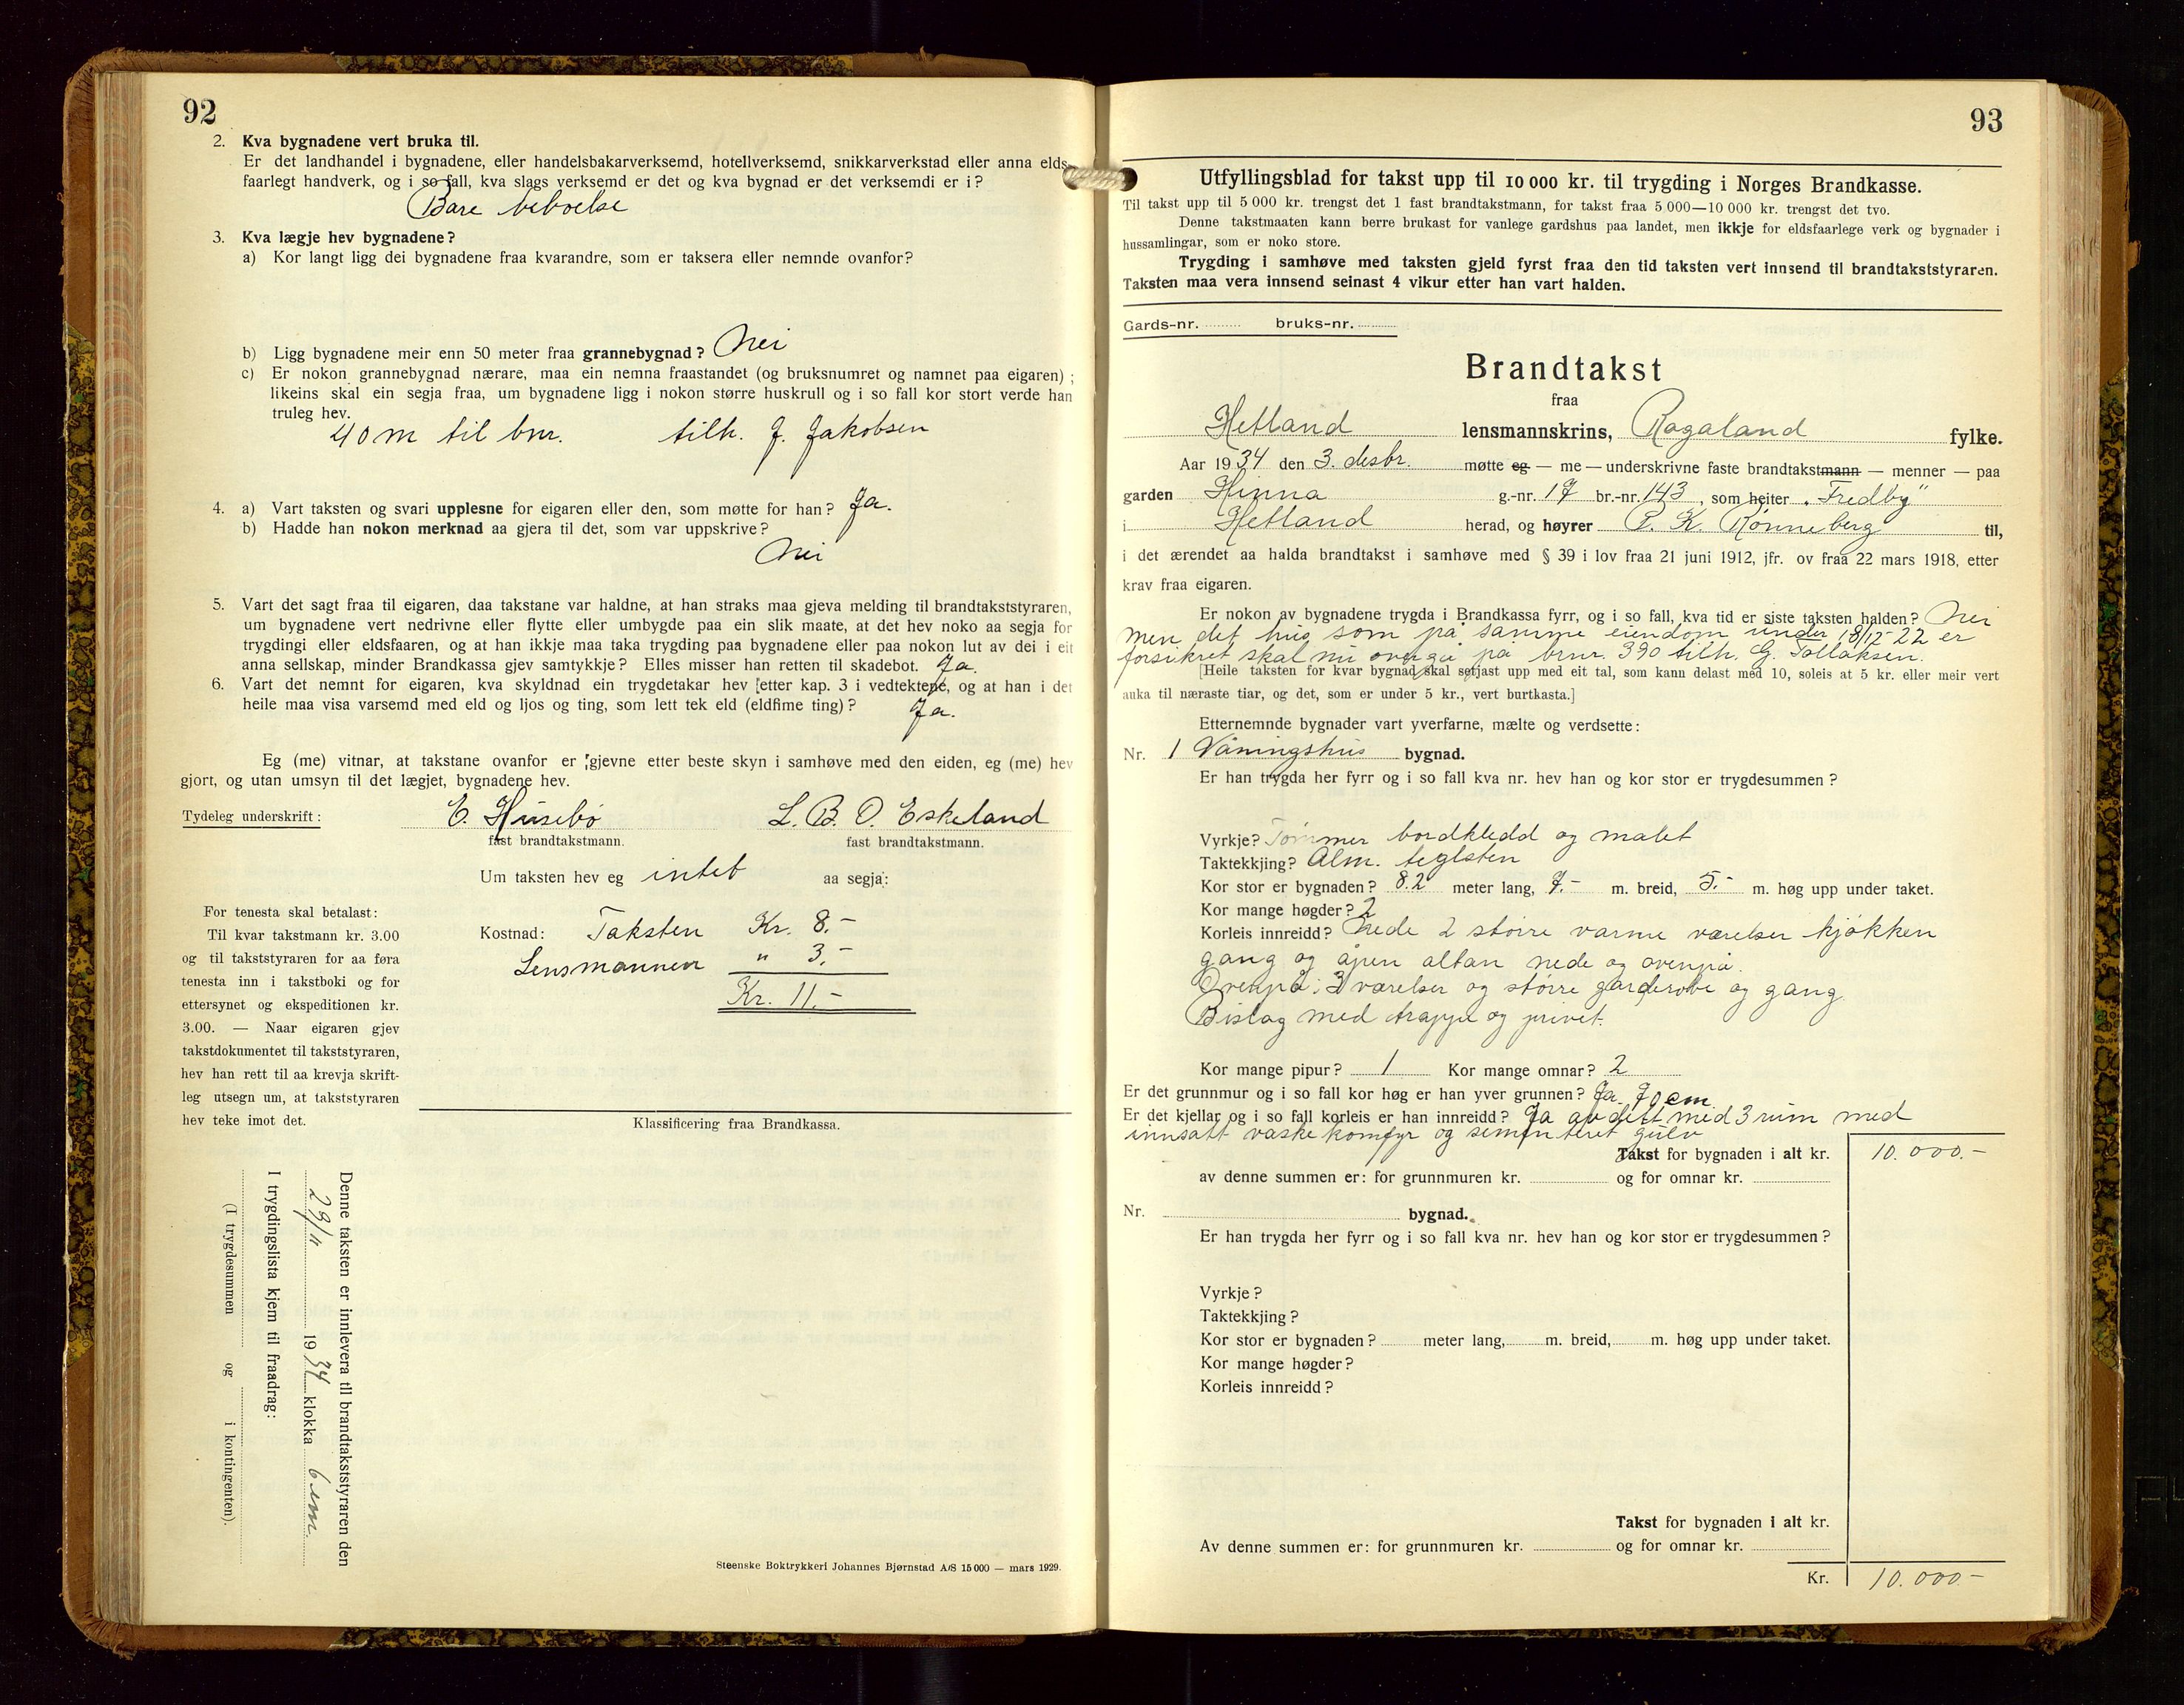 92
2. Kva bygnadene vert bruka til.
Er det landhandel i bygnadene, eller handelsbakarverksemd, hotellverksemd, snikkarverkstad eller anna elds-
faarlegt handverk, og i so fall, kva slags verksemd er det og kva bygnad er det verksemdi er i?
Bare beboelse
3. Kva lægje hev bygnadene?
a) Kor langt ligg dei bygnadene fraa kvarandre, som er taksera eller nemnde ovanfor?
b) Ligg bygnadene meir enn 50 meter fraa grannebygnad? Nei
c) Er nokon grannebygnad nærare, maa ein nemna fraastandet (og bruksnumret og namnet paa eigaren);
likeins skal ein segja fraa, um bygnadene ligg i nokon større huskrull og i so fall kor stort verde han
truleg hev.
40 m til bnr. tilh. J. Jakobsen
4. a) Vart taksten og svari upplesne for eigaren eller den, som møtte for han? Ja.
b) Hadde han nokon merknad aa gjera til det, som var uppskrive?
Nei
5. Vart det sagt fraa til eigaren, daa takstane var haldne, at han straks maa gjeva melding til brandtakststyraren,
um bygnadene vert nedrivne eller flytte eller umbygde paa ein slik maate, at det hev noko aa segja for
trygdingi eller eldsfaaren, og at han ikkje maa taka trygding paa bygnadene eller paa nokon lut av dei i eit
anna sellskap, minder Brandkassa gjev samtykkje? Elles misser han retten til skadebot. Ja.
6. Vart det nemnt for eigaren, kva skyldnad ein trygdetakar hev etter kap. 3 i vedtektene, og at han i det
heile maa visa varsemd med eld og ljos og ting, som lett tek eld (eldfime ting)? Ja.
Eg (me) vitnar, at takstane ovanfor er gjevne etter beste skyn i samhøve med den eiden, eg (me) hev
gjort, og utan umsyn til det lægjet, bygnadene hev.
Tydeleg underskrift: E. Husebø L. B. O. Eskeland
fast brandtakstmann. fast brandtakstmann.
Um taksten hev eg intet aa segja:
Kostnad: Taksten Kr. 8.-
Lensmannen " 3.-
Kr. 11.-
For tenesta skal betalast:
Til kvar takstmann kr. 3.00
og til takststyraren for aa føra
tenesta inn i takstboki og for
ettersynet og ekspeditionen kr.
3.00. — Naar eigaren gjev
takstdokumentet til takststyraren,
hev han rett til aa krevja skrift-
leg utsegn um, at takststyraren
hev teke imot det.
Klassificering fraa Brandkassa.
Denne taksten er innlevera til brandtakststyraren den
29/11 1934 klokka 6 em.
I trygdingslista kjem til fraadrag:
(I trygdesummen og i kontingenten).
Steenske Boktrykkeri Johannes Bjørnstad A/S 15 000 — mars 1929.
93
Utfyllingsblad for takst upp til 10 000 kr. til trygding i Norges Brandkasse.
Til takst upp til 5 000 kr. trengst det 1 fast brandtakstmann, for takst fraa 5 000—10 000 kr. trengst det tvo.
Denne takstmaaten kann berre brukast for vanlege gardshus paa landet, men ikkje for eldsfaarlege verk og bygnader i
hussamlingar, som er noko store.
Trygding i samhøve med taksten gjeld fyrst fraa den tid taksten vert innsend til brandtakststyraren.
Taksten maa vera innsend seinast 4 vikur etter han vart halden.
Gards-nr. bruks-nr.
Brandtakst
fraa
Hetland lensmannskrins, Rogaland fylke.
Aar 1934 den 3. desbr. møtte eg — me — underskrivne faste brandtakstmann — menner — paa
garden Hinna g.-nr. 17 br.-nr. 143, som heiter "Fredby"
i Hetland herad, og høyrer P. K. Rønneberg til,
i det ærendet aa halda brandtakst i samhøve med § 39 i lov fraa 21 juni 1912, jfr. ov fraa 22 mars 1918, etter
krav fraa eigaren.
Er nokon av bygnadene trygda i Brandkassa fyrr, og i so fall, kva tid er siste taksten halden? Nei
men det hus som på samme eiendom under 18/12-22 er
forsikret skal nu overgå på brnr. 390 tilh. G. Tollaksen.
[Heile taksten for kvar bygnad skal setjast upp med eit tal, som kann delast med 10, soleis at 5 kr. eller meir vert
auka til næraste tiar, og det, som er under 5 kr., vert burtkasta.]
Etternemnde bygnader vart yverfarne, mælte og verdsette:
Nr. 1 Våningshus bygnad.
Er han trygda her fyrr og i so fall kva nr. hev han og kor stor er trygdesummen?
Vyrkje? Tømmer bordkledd og malet
Taktekkjing? Alm. teglsten
Kor stor er bygnaden? 8.2 meter lang, 7.- m. breid, 5.- m. høg upp under taket.
Kor mange høgder? 2
Korleis innreidd? Nede 2 større varme værelser kjøkken
gang og åpen altan nede og ovenpå.
Ovenpå: 3 værelser og større garderobe og gang
Bislag med trappe og privet.
Kor mange pipur? 1 Kor mange omnar? 2
Er det grunnmur og i so fall kor høg er han yver grunnen? Ja 70 cm
Er det kjellar og i so fall korleis er han innreidd? Ja avdelt med 3 rum med
innsatt vaskekomfyr og sementeret gulv
Takst for bygnaden i alt kr. 10.000.-
av denne summen er: for grunnmuren kr. og for omnar kr.
Nr. bygnad.
Er han trygda her fyrr og i so fall kva nr. hev han og kor stor er trygdesummen?
Vyrkje?
Taktekkjing?
Kor stor er bygnaden? meter lang, m. breid, m. høg upp under taket.
Kor mange høgder?
Korleis innreidd?
Takst for bygnaden i alt kr.
Av denne summen er: for grunnmuren kr. og for omnar kr.
Kr. 10.000-